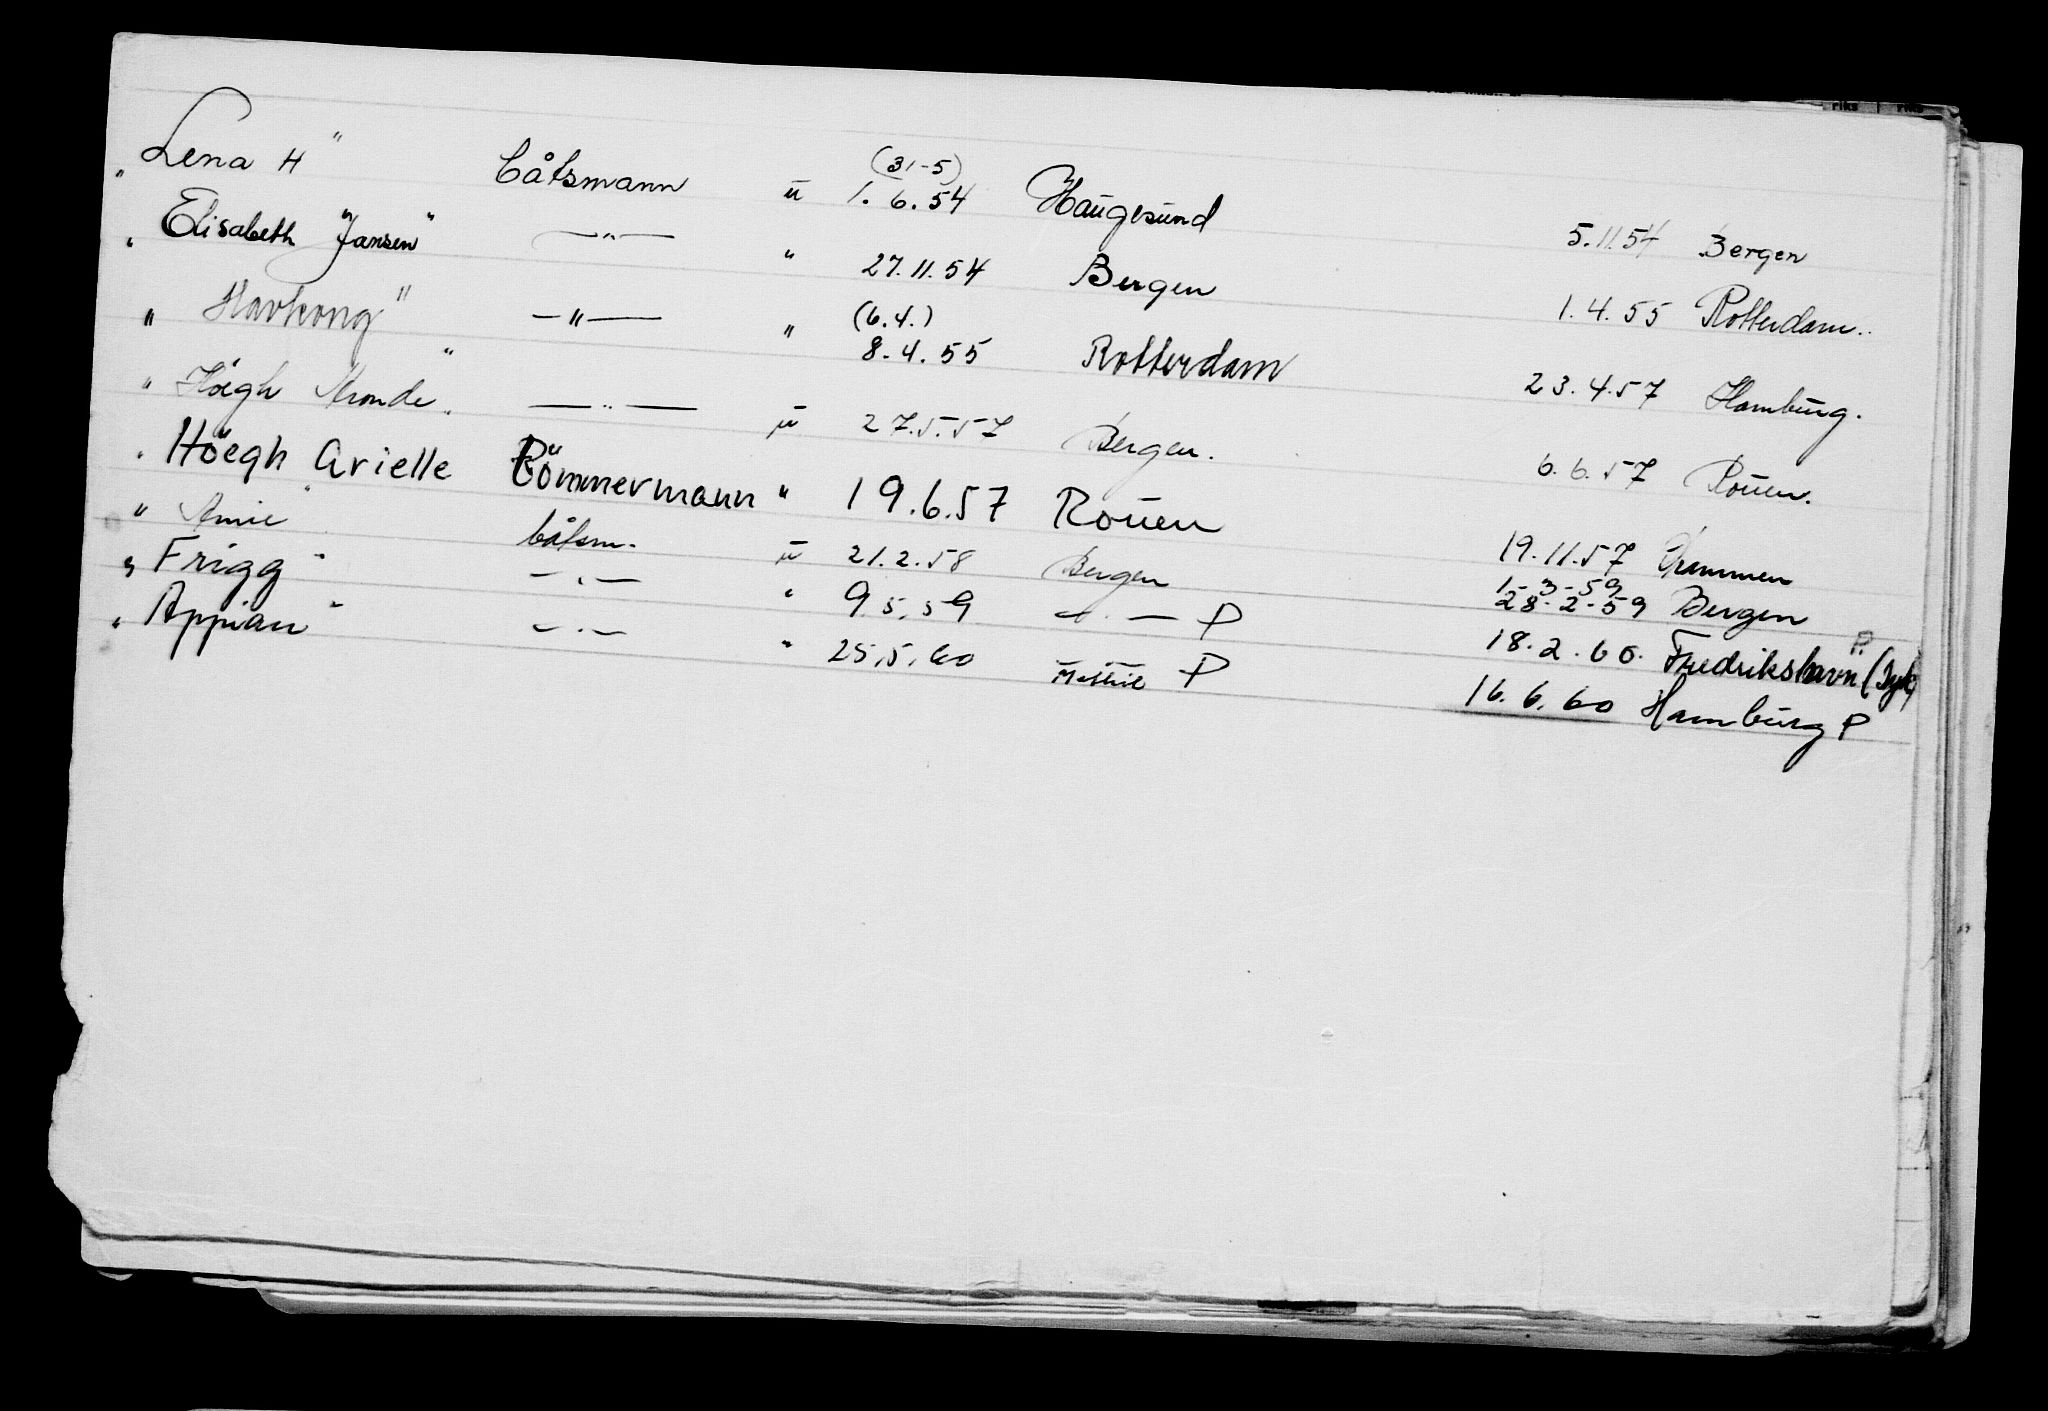 „ Lena H" båtsmann u (31-5) 1.6.54 Haugesund 5.11.54 Bergen
„ Elisabeth "Jansen" —"— " 27.11.54 Bergen 1.4.55 Rotterdam.
" Havkong" —"— " (6.4.) 8.4.55 Rotterdam 23.4.57 Hamburg.
" Höegh " —"— u 27.5.57 Bergen. 6.6.57 Rouen.
" Höegh Arielle Tömmermann " 19.6.57 Rouen 19.11.57 Drammen
" båtsm. u 21.2.58 Bergen 1-3-59 28-2-59 Bergen
" Frigg" —"— " 9.5.59 —"— P 18.2.60. Fredrikshavn P.
" Appian" —"— " 25.5.60 P 16.6.60 Hamburg P